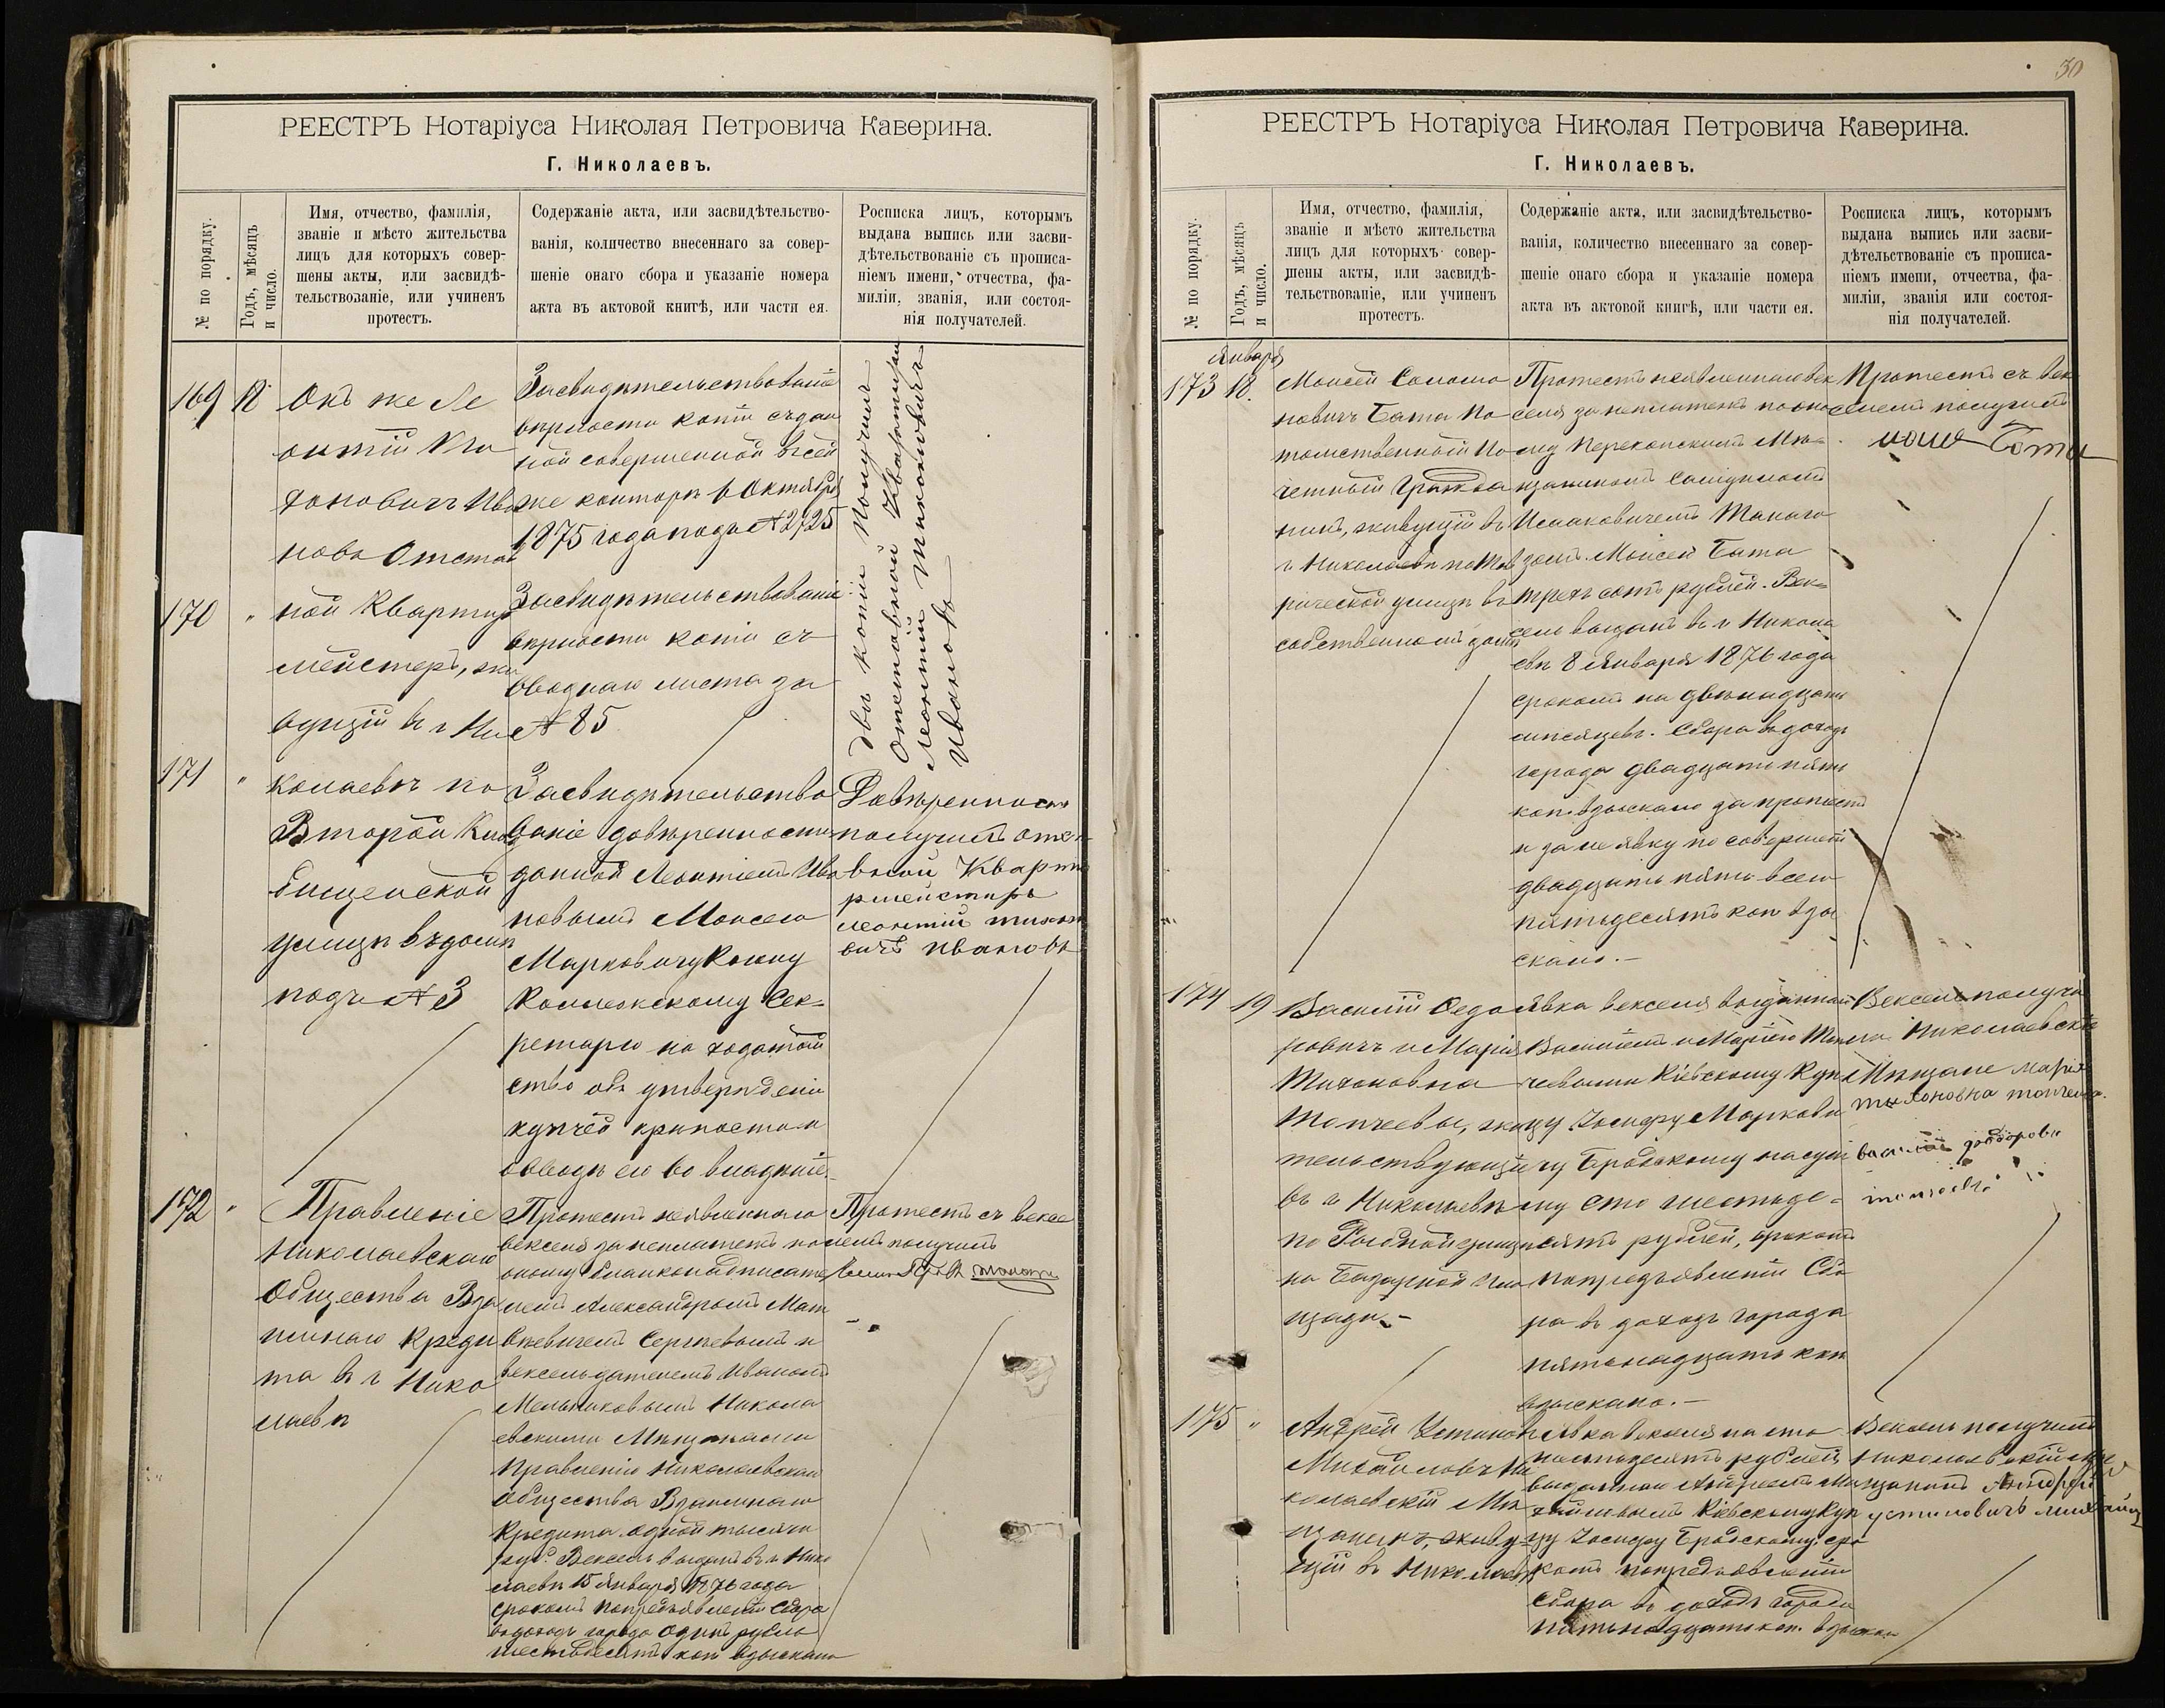 РЕЕСТРЪ Нотаріуса Николая Петровича Каверина.
Г. Николаевъ.
№ по порядку.
Годъ, мѣсяцъ
и число.
Имя, отчество, фамилія,
званіе и мѣсто жительства
лицъ для которыхъ совер-
шены акты, или засвидѣ-
тельствованіе, или учиненъ
протестъ.
Содержаніе акта, или засвидѣтельство-
ванія, количество внесеннаго за совер-
шеніе онаго сбора и указаніе номера
акта въ актовой книгѣ, или части ея.
Росписка лицъ, которымъ
выдана выпись или засви-
дѣтельствованіе съ прописа-
ніемъ имени, отчества, фа-
миліи, званія, или состоя-
нія получателей.
169
Онъ же Ле
онтій
ховичъ Ива
новъ Отстав
ной Квартир
мейстеръ, жи
вущій въ г Ни
колаевѣ по
Второй
улицѣ въ домѣ
подъ № 3
Засвидѣтельствованіе
вѣрности копіи съ дан
ной совершенной въ сей
же конторѣ 6 Октября
1875 года подъ № 2725
170 "
Засвидѣтельствованіе
вѣрности копіи съ
вводнаго листа за
№ 85
двѣ копіи получилъ
Отставной Квартирм
Леонтій Тихоновичъ
Ивановъ
171 "
Засвидѣтельство
ваніе довѣренности
данной Леонтіемъ Ива
новымъ Моисею
Марковичу
Коллежскому Сек-
ретарю на ходатай
ство объ утвержденіи
купчей крѣпости и
вводѣ его во владѣніе.
Довѣренность
получилъ отста
вной Кварти
рмейстиръ
леонтій тихоно
вичъ ивановъ
172 "
Правленіе
Николаевскаго
Общества Вза
имнаго Креди
та въ г Нико
лаевѣ
Протестъ неявленнаго
векселя за неплатежъ по
оному бланконадписате
лемъ Александромъ Мат
вѣевичемъ Сергѣевымъ и
векселедателемъ Иваномъ
Мельниковымъ Никола
евскими Мѣщанами
Правленію Николаевскаго
Общества Взаимнаго
Кредита одной тысячи
руб. Вексель выданъ въ г Нико
лаевѣ 15 Января 1876 года
срокомъ по предъявленіи Сбора
въ доходъ города Одинъ рубль
шестьдесятъ коп взыскано
Протестъ съ вексе
лемъ получилъ
30
РЕЕСТРЪ Нотаріуса Николая Петровича Каверина.
Г. Николаевъ.
№ по порядку.
Годъ, мѣсяцъ
и число.
Имя, отчество, фамилія,
званіе и мѣсто жительства
лицъ для которыхъ совер-
шены акты, или засвидѣ-
тельствованіе, или учиненъ
протестъ.
Содержаніе акта, или засвидѣтельство-
ванія, количество внесеннаго за совер-
шеніе онаго сбора и указаніе номера
акта въ актовой книгѣ, или части ея.
Росписка лицъ, которымъ
выдана выпись или засви-
дѣтельствованіе съ прописа-
ніемъ имени, отчества, фа-
миліи, званія или состоя-
нія получателей.
Января
173 18.
Моисей Соломо
новичъ Бота По
томственный По
четный Гражда
нинъ, живущій въ
г Николаевѣ по Тав
рической улицѣ въ
собственномъ домѣ
Протестъ неявленнаго век
селя за неплатежъ по оно
му Перекопскимъ Мѣ-
щаниномъ
Исааковичемъ
Моисею Бота
трехъ сотъ рублей. Век-
сель выданъ въ г Никола
евѣ 8 Января 1876 года
срокомъ на двѣнадцать
мѣсяцевъ. Сбора въ доходъ
города двадцать пять
коп взыскано за протестъ
и за не явку по совершеніи
двадцать пять всего
пятьдесятъ коп взы
скано.-
Протестъ съ век
селемъ получилъ
174 19
Василій Ѳедо
ровичъ и Марія
Тихоновна
Топчеевы, жи
тельствующіе
въ г Николаевѣ
по Рыбной улицѣ
на Базарной пло
щади.-
Явка векселя выданнаго
Василіемъ и Маріею Топ
чеевыми Кіевскому Куп
цу Іосифу Маркови
чу Бродскому на сум
му сто шестьде-
сятъ рублей, срокомъ
по предъявленіи Сбо
ра въ доходъ города
пятнадцать коп
взыскано.-
Вексель получи
ли Николаевскіе
Мѣщане марія
тихоновна топчеева.
василій
175 "
Андрей Устинов
Михайловъ Ни
колаевскій Мѣ
щанинъ, живу
щій въ Николаевѣ
Явка векселя на сто
пятьдесятъ рублей
выданнаго Андреемъ Ми
хайловымъ Кіевскому Куп
цу Іосифу Бродскому, сро
комъ по предъявленіи
Сбора въ доходъ города
пятьнадцать коп. взыскан
Вексель получилъ
Николаевскій мѣ
щанинъ Андрей
устиновичъ михайл